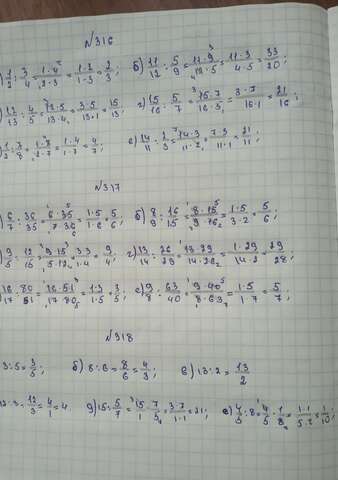 №316
1/2 : 3/4 = 1·4/2·3 = 1·2/1·3 = 2/3; б) 11/12 : 5/9 = 11·9/12·5 = 11·3/4·5 = 33/20;
12/13 : 4/5 = 12·5/13·4 = 3·5/13·1 = 15/13; г) 15/16 : 5/7 = 15·7/16·5 = 3·7/16·1 = 21/16;
1/2 : 7/8 = 1·8/2·7 = 1·4/1·7 = 4/7; е) 14/11 : 2/3 = 14·3/11·2 = 7·3/11·1 = 21/11;
№317
6/7 : 36/35 = 6·35/7·36 = 1·5/1·6 = 5/6; б) 8/9 : 16/15 = 8·15/9·16 = 1·5/3·2 = 5/6;
9/5 : 12/15 = 9·15/5·12 = 3·3/1·4 = 9/4; г) 13/14 : 26/29 = 13·29/14·26 = 1·29/14·2 = 29/28;
16/17 : 80/51 = 16·51/17·80 = 1·3/1·5 = 3/5; е) 9/8 : 63/40 = 9·40/8·63 = 1·5/1·7 = 5/7;
№318
3:5 = 3/5; б) 8:6 = 8/6 = 4/3; в) 13:2 = 13/2
12:3 = 12/3 = 4/1 = 4. д) 15 : 5/7 = 15/1 · 7/5 = 3·7/1·1 = 21; е) 4/5 : 8 = 4/5 · 1/8 = 1·1/5·2 = 1/10;